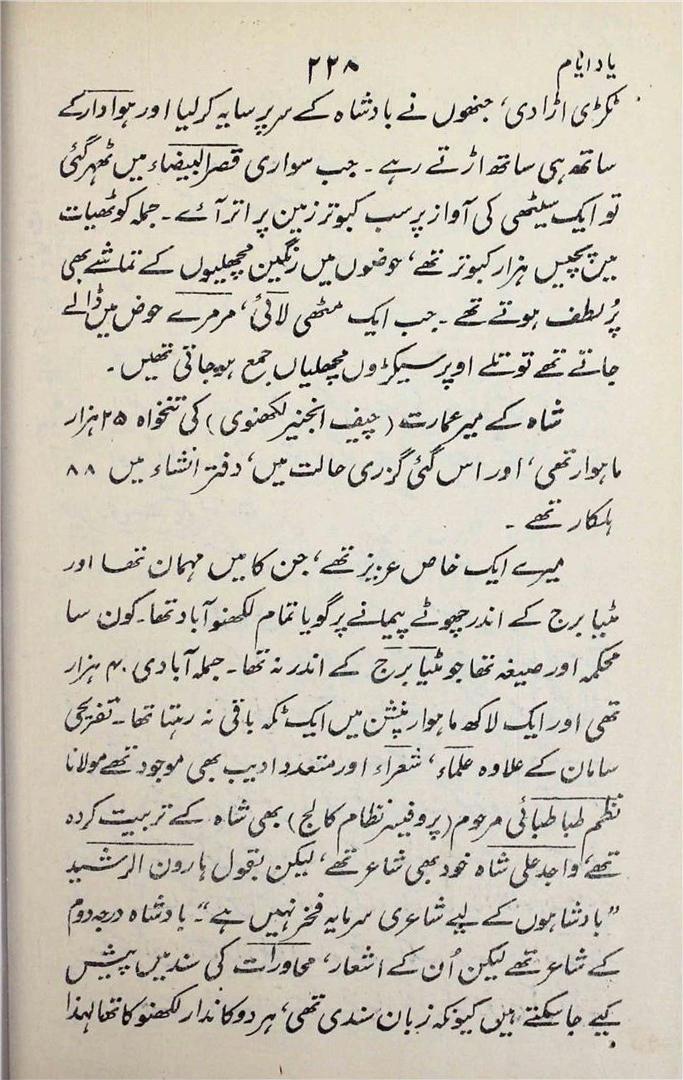 یاد ایام
۲۲۸
ٹکڑی اڑا دی، جنھوں نے بادشاہ کے سر پر سایہ کر لیا اور ہوادار کے
ساتھ ہی ساتھ اڑتے رہے۔ جب سواری قصر البیضاء میں ٹھہر گئی
تو ایک سیٹھی کی آواز پر سب کبوتر زمین پر اتر آئے۔ جملہ کوٹھیات
میں پچیس ہزار کبوتر تھے، حوضوں میں رنگین مچھلیوں کے تماشے بھی
پُر لطف ہوتے تھے۔ جب ایک مٹھی لائی، مرمرے حوض میں ڈالے
جاتے تھے تو تلے اوپر سیکڑوں مچھلیاں جمع ہو جاتی تھیں۔
شاہ کے میر عمارت (چیف انجنیر لکھنوی) کی تنخواہ ۲۵ ہزار
ماہوار تھی، اور اس گئی گزری حالت میں، دفتر انشاء میں ۸۸
اہلکار تھے۔
میرے ایک خاص عزیز تھے، جن کا میں مہمان تھا اور
مٹیا برج کے اندر چھوٹے پیمانے پر گویا تمام لکھنو آباد تھا۔ کون سا
محکمہ اور صیغہ تھا جو مٹیا برج کے اندر نہ تھا۔ جملہ آبادی ۴۰ ہزار
تھی اور ایک لاکھ ماہوار پنشن میں ایک ٹکہ باقی نہ رہتا تھا۔ تفریحی
سامان کے علاوہ علماء، شعراء اور متعدد ادیب بھی موجود تھے مولانا
نظم طباطبائی مرحوم (پروفیسر نظام کالج) بھی شاہ کے تربیت کردہ
تھے، واجد علی شاہ خود بھی شاعر تھے، لیکن بقول ہارون الرشید
"بادشاہوں کے لیے شاعری سرمایہ فخر نہیں ہے"۔ بادشاہ درجہ دوم
کے شاعر تھے لیکن اُن کے اشعار، محاورات کی سند میں پیش
کیے جا سکتے ہیں کیونکہ زبان سندی تھی، ہر دوکاندار لکھنو کا تھا لہذا